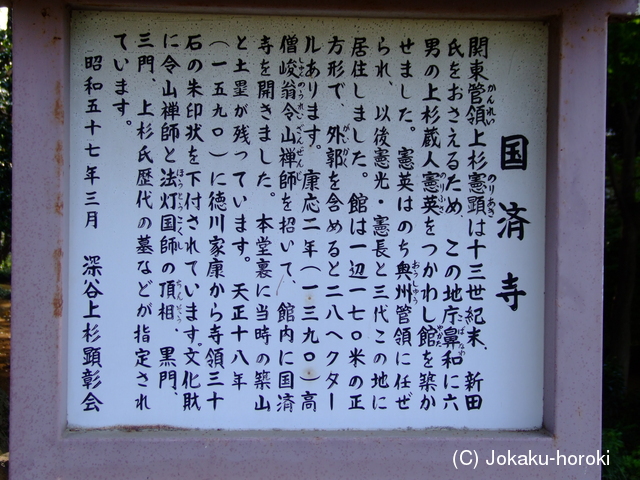 国済寺
関東管領上杉憲顕は十三世紀末、新田
氏をおさえるため、この地庁鼻和に六
男の上杉蔵人憲英をつかわし館を築か
せました。憲英はのち奥州管領に任ぜ
られ、以後憲光・憲長と三代この地に
居住しました。館は一辺一七〇米の正
方形で、外郭を含めると二八ヘクター
ルあります。康応二年(一三九〇)高
僧峻翁令山禅師を招いて、館内に国済
寺を開きました。本堂裏に当時の築山
と土塁が残っています。天正十八年
(一五九〇)に徳川家康から寺領三十
石の朱印状を下付されています。文化財
に令山禅師と法灯国師の頂相、黒門、
三門、上杉氏歴代の墓などが指定され
ています。
昭和五十七年三月 深谷上杉顕彰会
(C) Jokaku-horoki